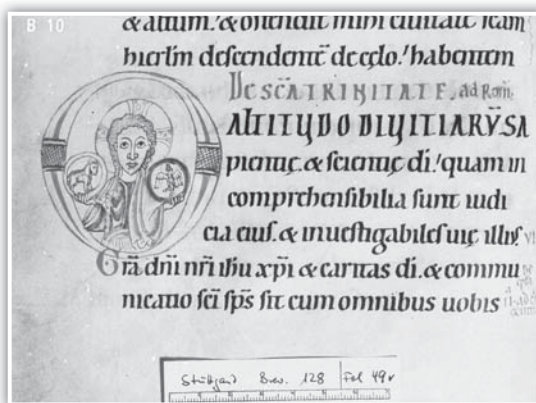 B 10
& altum. / & ostendit mihi ciuitatē scam
hierlm descendentē de cęlo. / habentem
DE SC̄A TRINITATE. ad Rom̄.
ALTITUDO DIUITIARUM SA
pientię. & scientię di. / quam in
comprehensibilia sunt iudi
cia eius. & inuestigabiles uię illius
Gr̄a dn̄i nr̄i ih̄u xp̄i & caritas dī. & commu
nicatio sc̄i sp̄s sit cum omnibus uobis
Stuttgart Brev. 128 Fol 49v